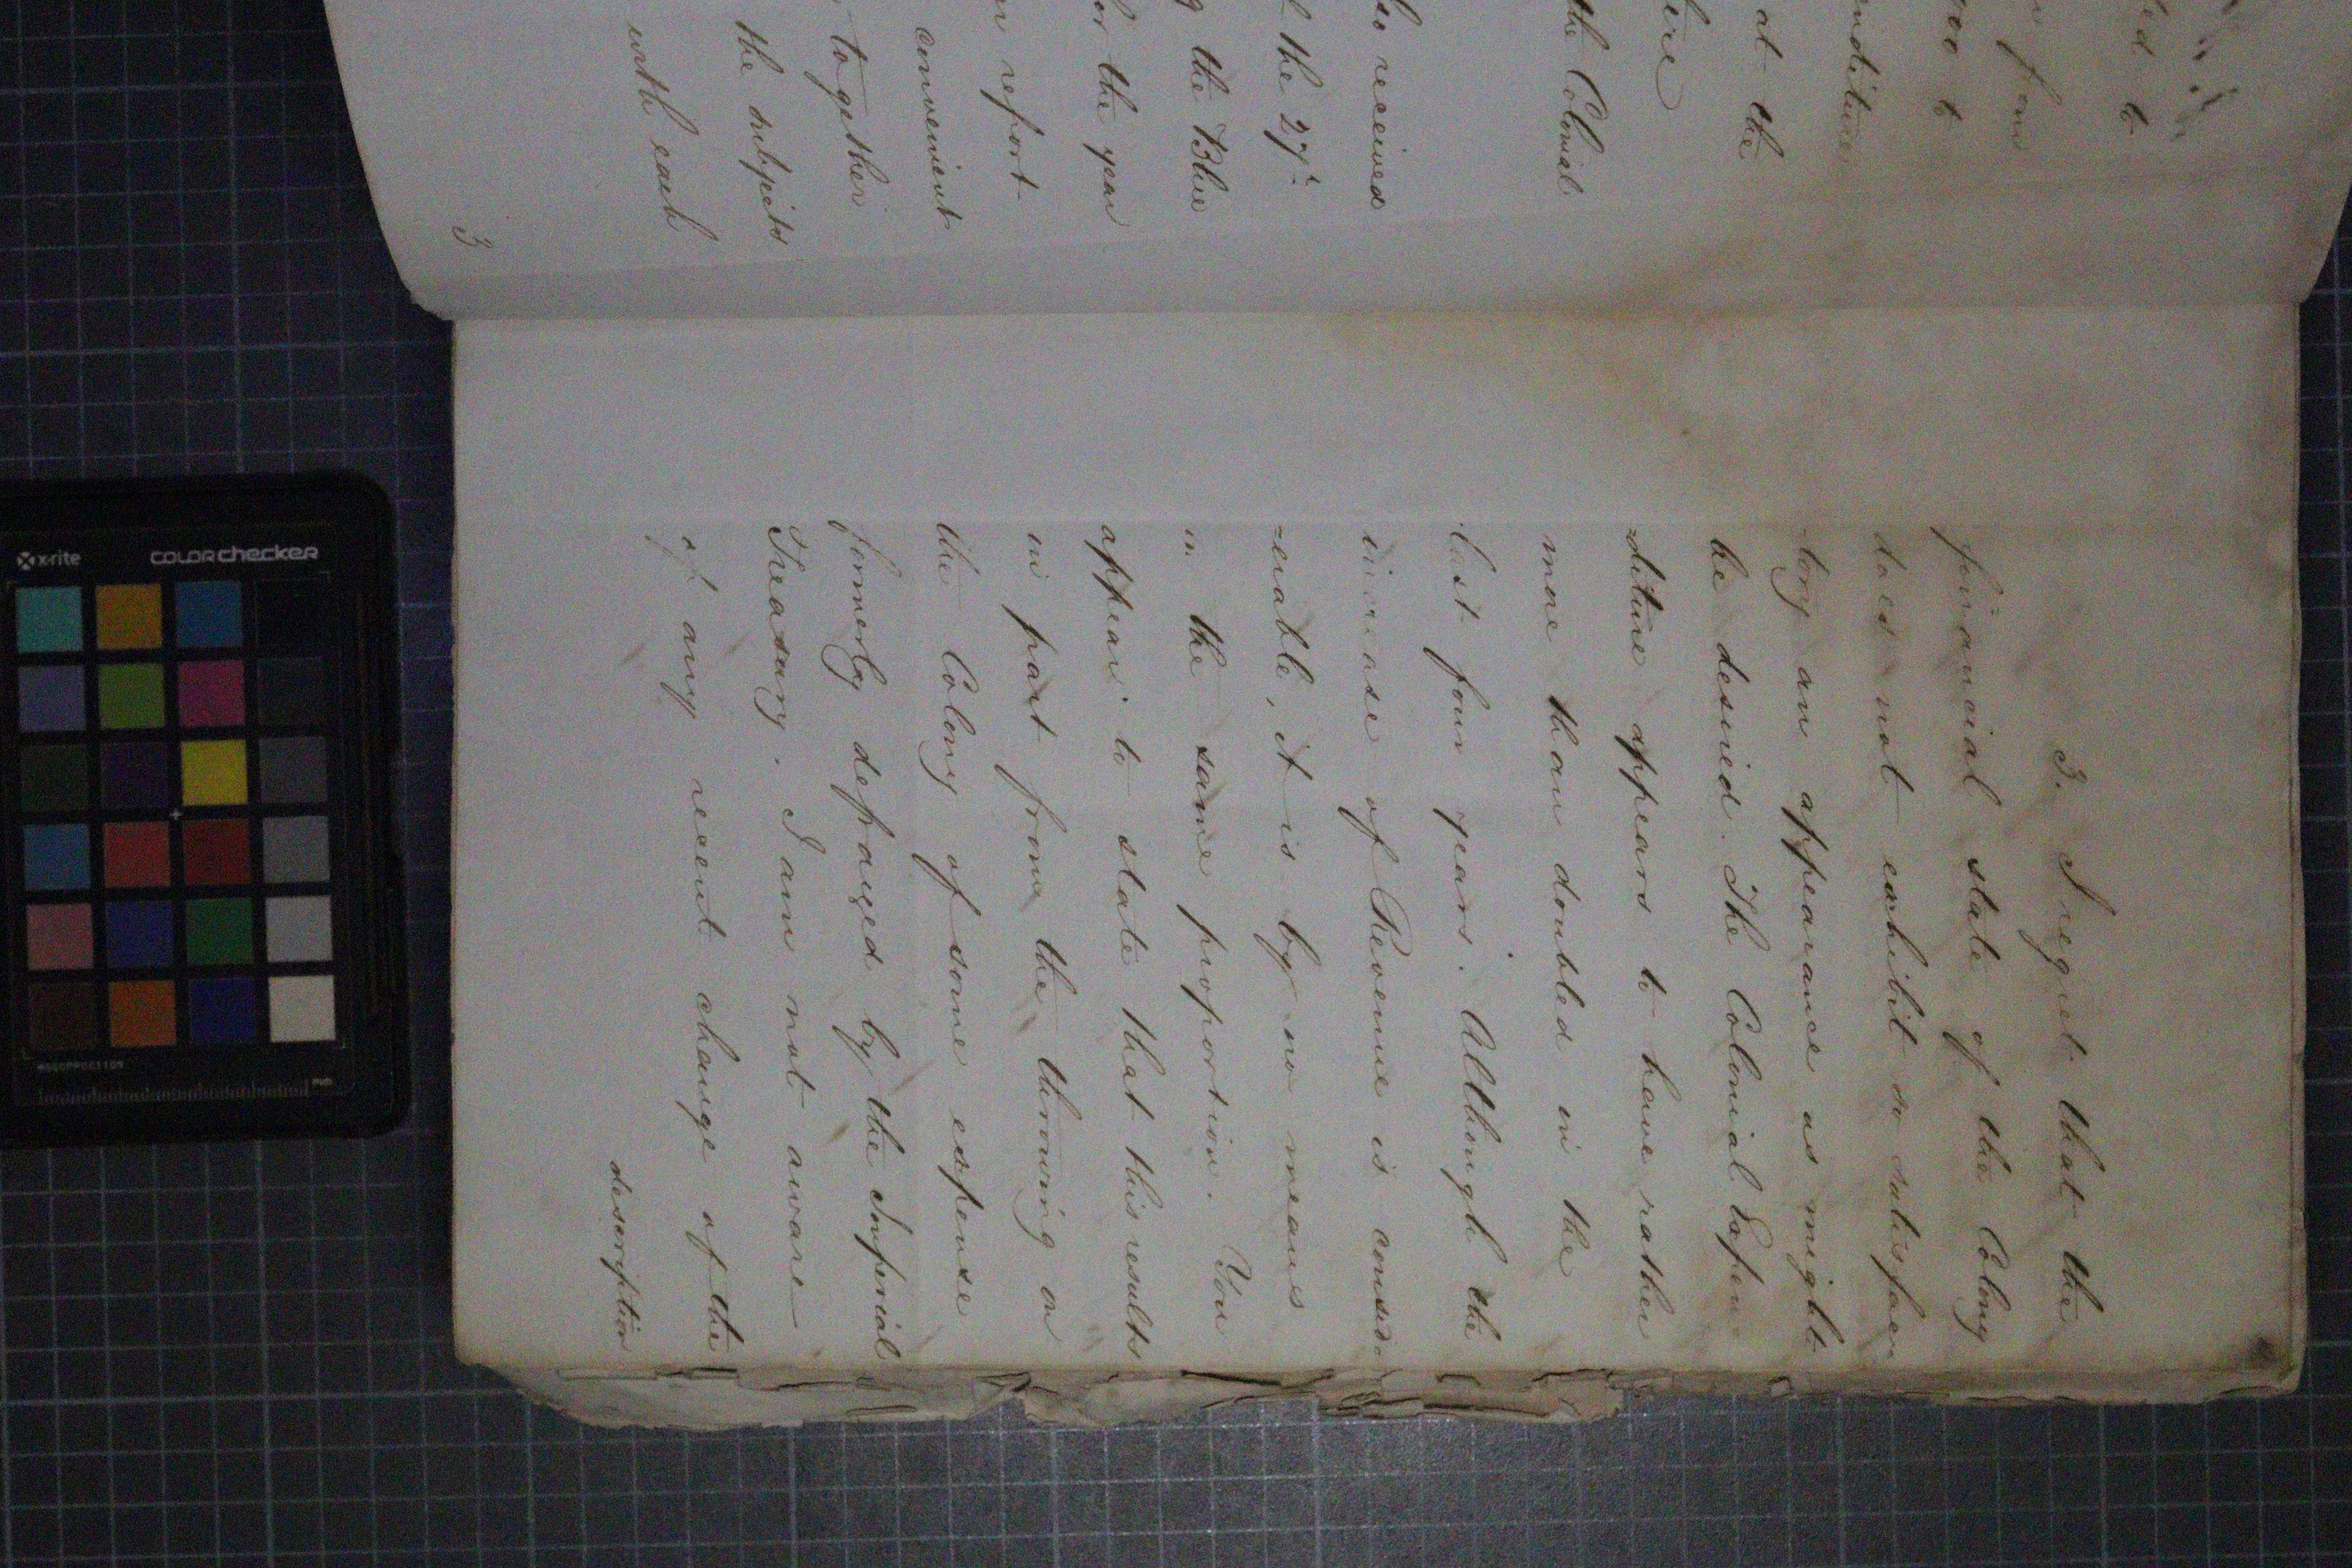 ded to
en from
700 to
enditure
at the
ere
the Colonial
so received
f the 27th
g the Blue
or the year
en report
convenient
, together
the subjects
with each
3
3. I regret that the
financial state of the Colony
does not exhibit so satisfac
-tory an appearance as might
be desired. The Colonial Expen
-diture appears to have rather
more than doubled in the
last four years. Although the
increase of Revenue is consid
-erable, it is by no means
in the same proportion. You
appear to state that this results
in part from the throwing on
the Colony of some expense
formerly defrayed by the Imperial
Treasury. I am not aware
of any recent change of the
description
x-rite
COLORchecker
mm